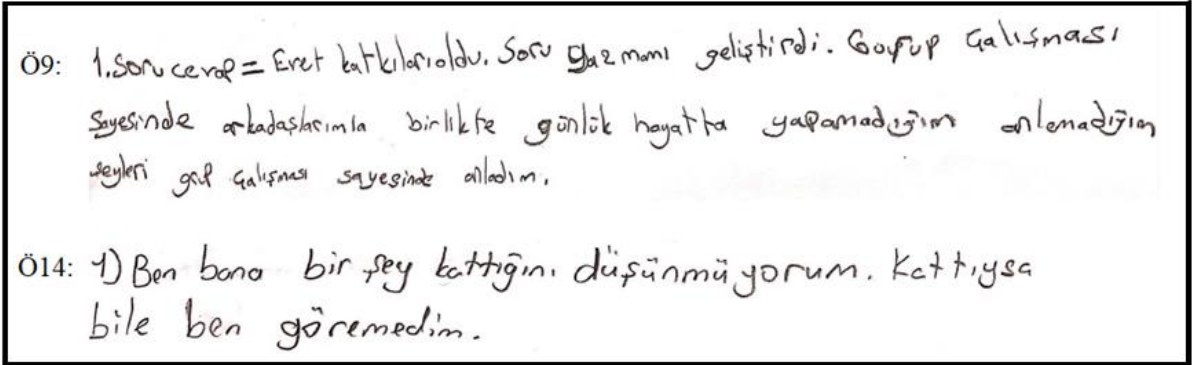 Ö9: 1.Soru cevap = Evet katkıları oldu. Soru yazmamı geliştirdi. Gurup Çalışması
Sayesinde arkadaşlarımla birlikte günlük hayatta yapamadığım anlamadığım
şeyleri gurup çalışması sayesinde anladım.
Ö14: 1) Ben bana bir şey kattığını düşünmüyorum. Kattıysa
bile ben göremedim.